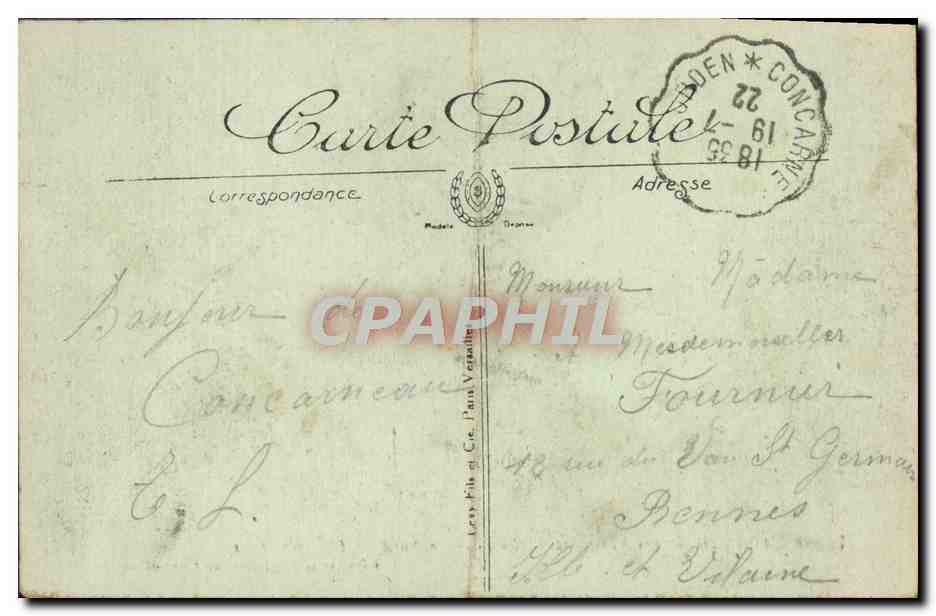 Carte Postale
Correspondance
Adresse
Modèle Déposé
ROSPORDEN * CONCARNE
18 35
19 -7
22
Bonjour de
Concarneau
E. L.
Levy Fils et Cie, Paris, Versailles
Monsieur Madame
et Mesdemoiselles
Fournier
12 rue du Vau St Germain
Rennes
Ille et Vilaine
CPAPHIL